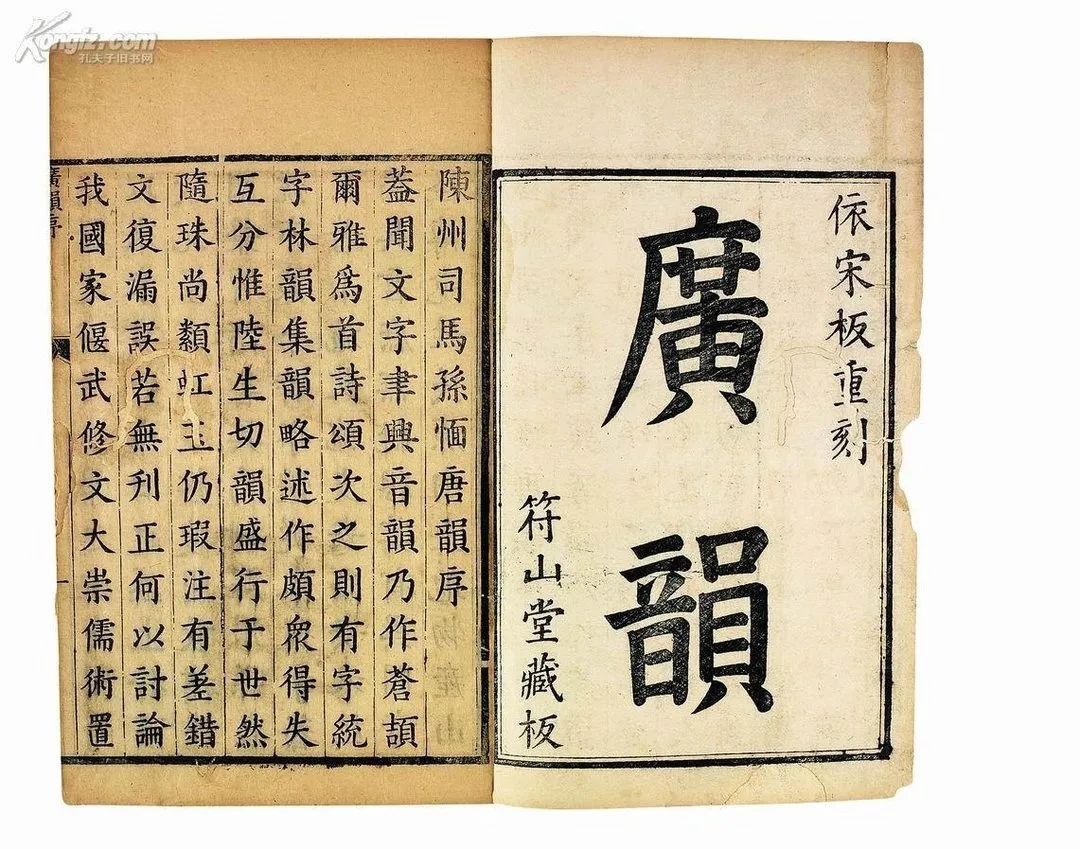 Kongfz.com
孔夫子旧书网
依宋板重刻
廣韻
符山堂藏板
陳州司馬孫愐唐韻序
葢聞文字聿興音韻乃作蒼頡
爾雅爲首詩頌次之則有字統
字林韻集韻略述作頗衆得失
互分惟陸生切韻盛行于世然
隨珠尚纇虹玉仍瑕注有差錯
文復漏誤若無刋正何以討論
我國家偃武修文大崇儒術置
廣韻序